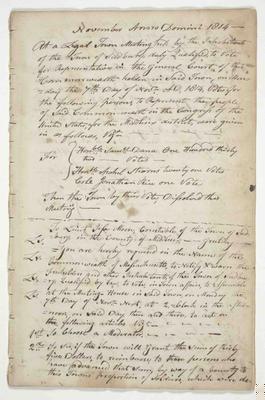 November Anno Domini 1814
At a Legal Town Meeting held by the Inhabitants
of the Town of Sudbury duly Qualified to Vote
for Representatives in the General Court of the
Commonwealth holden in Said Town, on Mon
day the 7th Day of Novr AD. 1814 Votes for
the following persons to Represent the people
of Said Commonwealth in the Congress of the
United States for the district, were given
in as follows, Viz
For
Honble Saml Dana One Hundred thirty
Votes
Honble Stearns twenty one Votes
Colo Jonathan Rice one Vote
Then the Town by their Vote Disolved this
Meeting
To Moore, Constable of the Town of Sud
bury in the County of Middlesex Greeting
You are hereby required in the Name of the
Commonwealth of Massachusetts to Notify & Warn the
Freeholders and other Inhabitants of the Town of Sudbu
ry Qualified by Law to Vote in Town affairs to assemble
at the Meeting House in Said Town on Monday the
7th Day of Novr Next, at Clock in the after
noon in Said Day then and there to act on
the following articles Viz
1st To Choose a Moderator
2nd To See if the Town will Grant the Sum of thirty
five Dollars to reimburse to those persons who
have advanced that Sum by way of a bounty to
this Towns proportion of Soldiers which were de